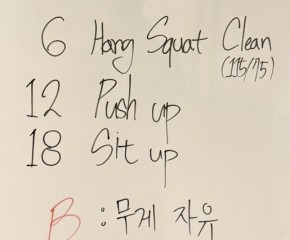 6 Hang Squat Clean
(115/75)
12 Push up
18 Sit up
B : 무게 자유